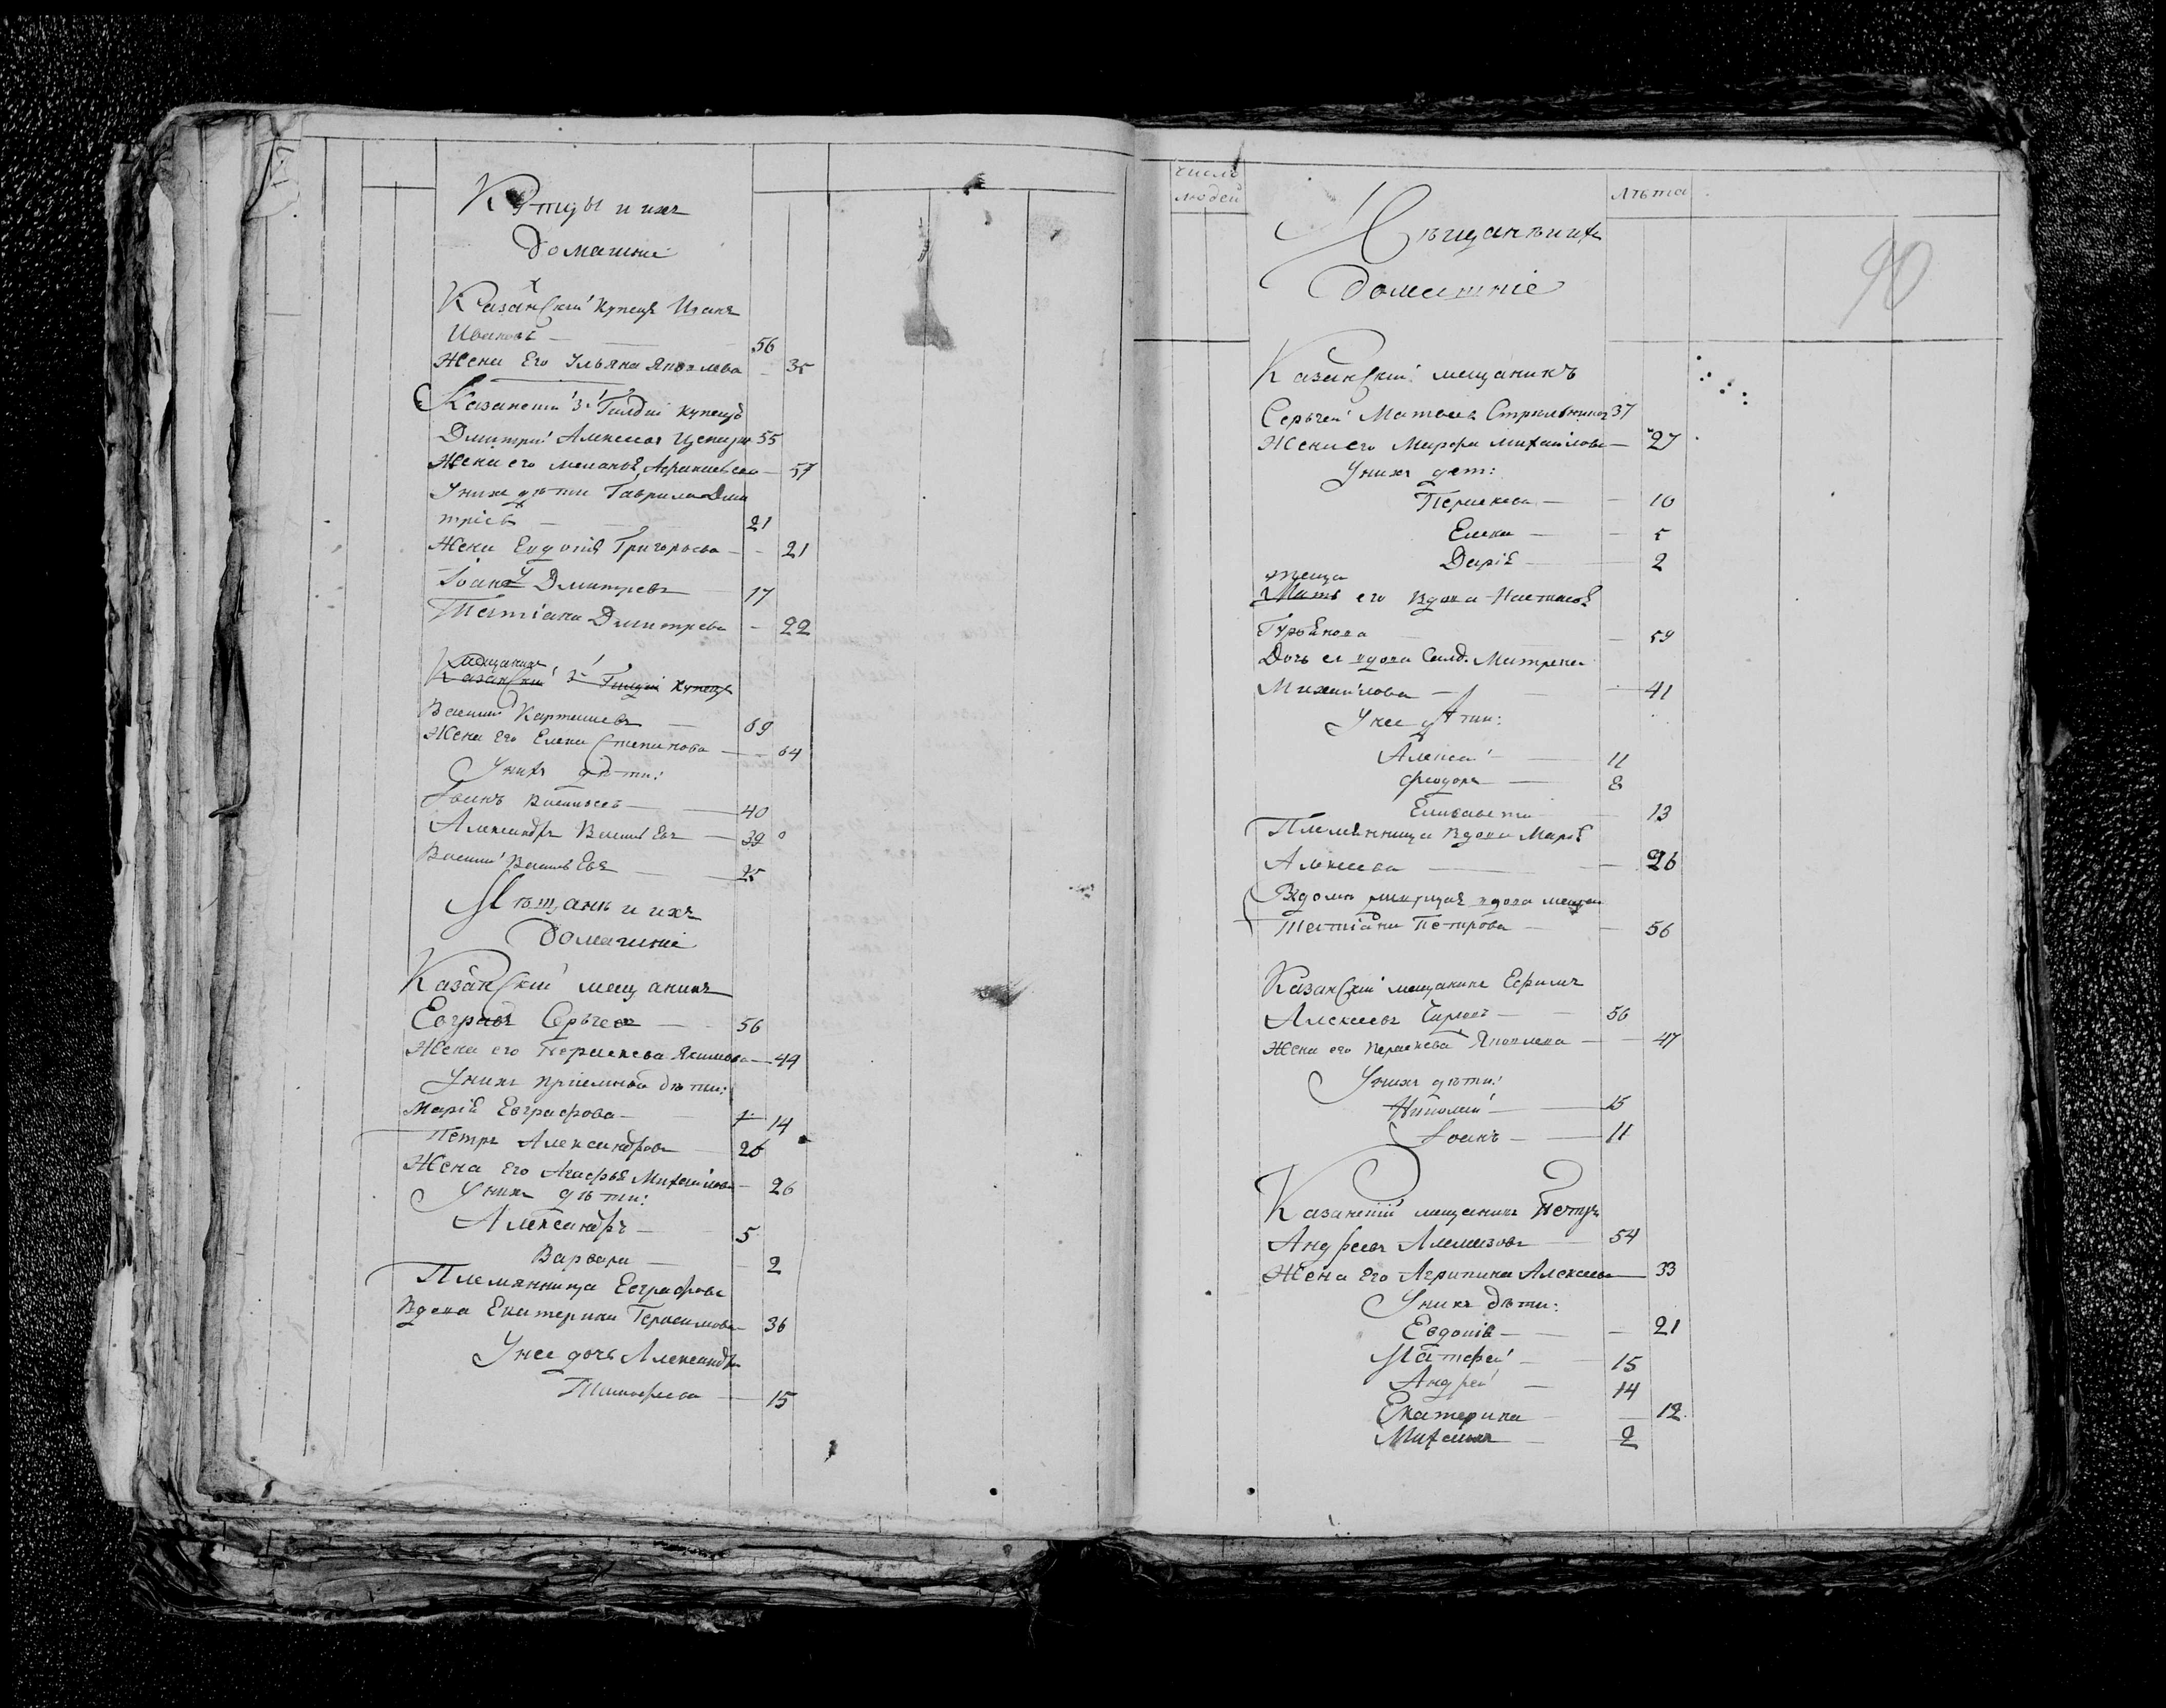 Купцы и ихъ
Домашніе
Казанскій купецъ Иванъ
Ивановъ 56
Жена его Ульяна Яковлева 35
Казанскій 3й Гилдіи купецъ
Дмитрій Алексѣевъ 55
Жена его Меланья 57
У нихъ дѣти Гаврила Дми
тріевъ 21
Жена Евдокія Григорьева 21
Іоаннъ Дмитревъ 17
Татіана Дмитрева 22
Мѣщанинъ
Казанскій 3й Гилдіи купецъ
Василій Карташевъ 69
Жена его Елена Степанова 64
У нихъ дѣти:
Іоаннъ Васильевъ 40
Александръ Васильевъ 39
Василій Васильевъ 25
Мѣщане и ихъ
Домашніе
Казанскій мещанинъ
Евграфъ Сергеевъ 56
Жена его Параскева Якимова 44
У нихъ пріемныя дѣти:
Марія Евграфова 14
Петръ Александровъ 26
Жена его Агафья Михайлова 26
У нихъ дѣти:
Александръ 5
Варвара 2
Племянница Евграфова
Вдова Екатерина Герасимова 36
У нее дочь Александра
Тимофеева 15
число
людей
лѣта
90
Мѣщане и ихъ
Домашніе
Казанскій мещанинъ
Сергей Матвеевъ 37
Жена его Марфа Михайлова 27
У нихъ дет:
Параскева 10
Елена 5
Дарія 2
теща
Мать его вдова Настасья
Гурьянова 59
Дочь ея вдова Салд. Матрена
Михайлова 41
У нее дѣти:
Алексей 11
Феодоръ 8
Елисавета 13
Племянница вдова Марья
Алексеева 26
В доме вдова мещан
Татіана Петрова 56
Казанскій мещанинъ Ефимъ
Алексеевъ 56
Жена его Параскева Яковлева 47
У нихъ дѣти:
Николай 15
Іоаннъ 11
Казанскій мещанинъ Петръ
Андреевъ 54
Жена его Агрипина Алексеева 33
У нихъ дѣти:
Евдокія 21
Матфей 15
Андрей 14
Екатерина 12
Михаилъ 2